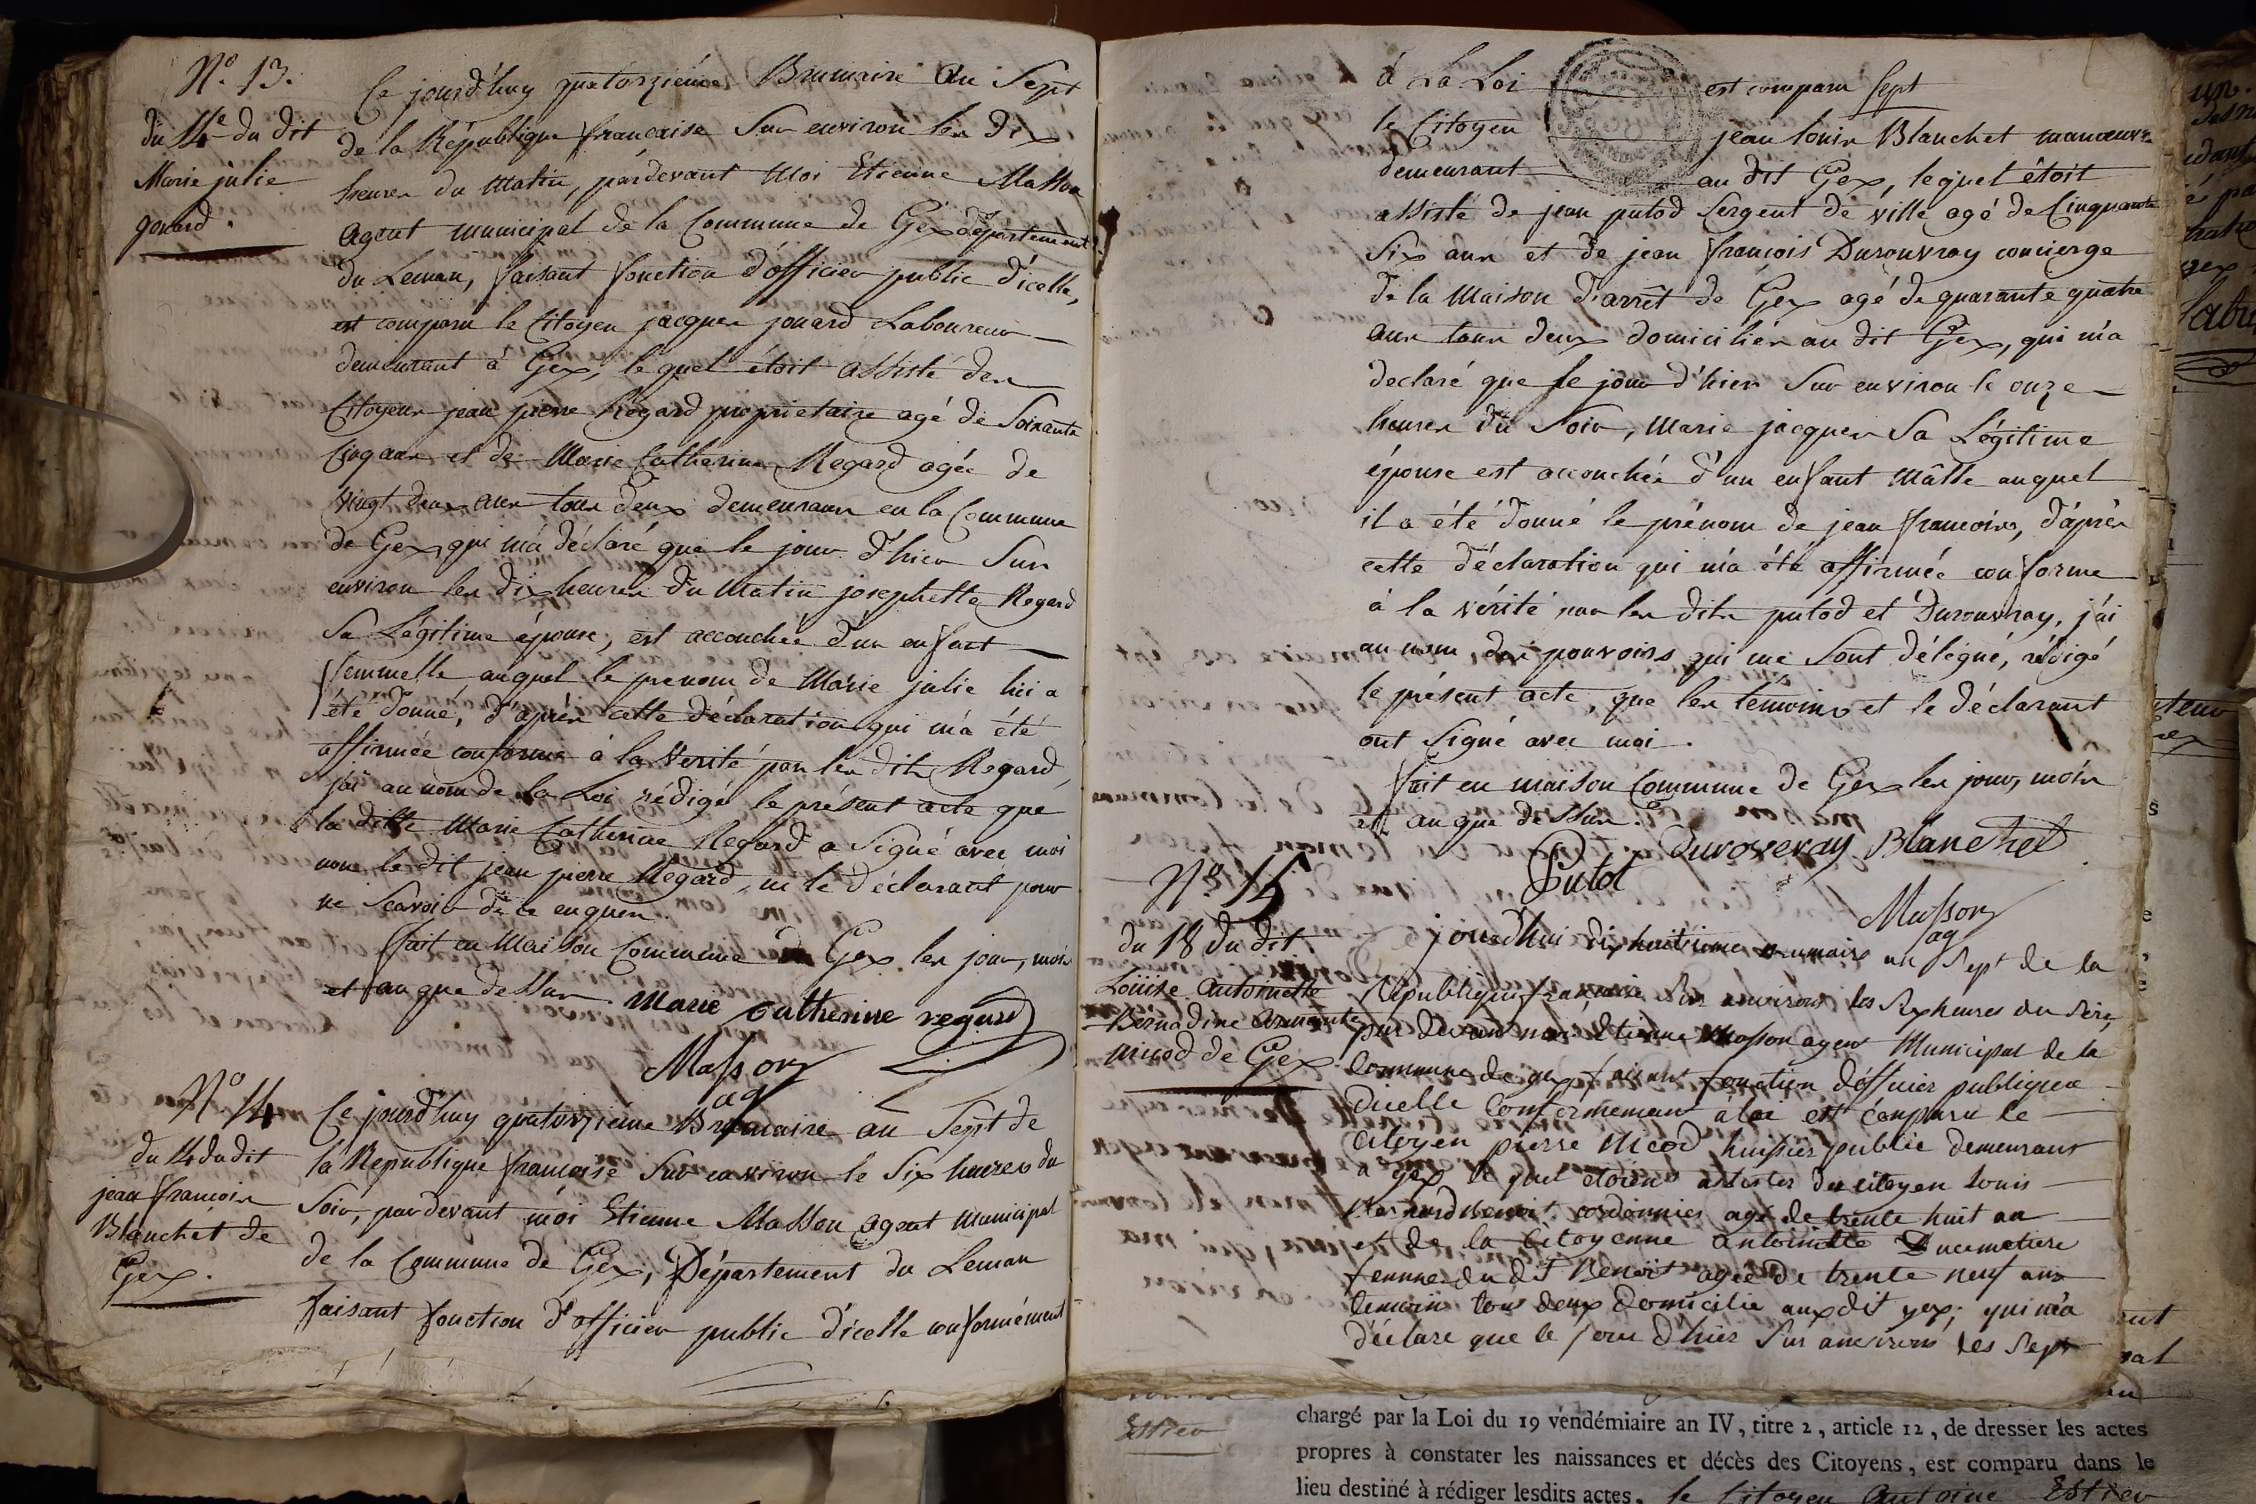 N.° 13.
du 14e du dit
Marie julie
jouard.
Ce jourd'huy quatorzième Brumaire an Sept
de la République francaise Sur environ les dix
heures du Matin, pardevant Moi Etienne Masson
agent municipal de la Commune de Gex département
du Leman, faisant fonction d'officier public d'icelle,
est comparu le Citoyen jacques jouard Laboureur
demeurant à Gex, lequel étoit assisté des
Citoyens jean pierre Regard propriétaire agé de Soixante
Cinq ans et de Marie Catherine Regard agée de
Vingt deux ans tous deux demeurans en la Commune
de Gex, qui m'a déclaré que le jour d'hier Sur
environ les dix heures du Matin josephette Regard
Sa Légitime épouse, est accouchée d'un enfant
femmelle, auquel le prenom de Marie julie lui a
été donné, d'après cette déclaration qui m'a été
affirmée conforme à la Verité par les dits Regard,
j'ai au nom de la Loi rédigé le présent acte que
la ditte Marie Catherine Regard a Signé avec moi
non le dit jean pierre Regard, ni le déclarant pour
ne Scavoir de ce enquis.
fait en Maison Commune de Gex les jour, mois
et an que dessus.
Marie Catherine regard
Masson
ag
N° 14
du 14 du dit
jean françois
Blanchet de
Gex.
Ce jourd'huy quatorzième Brumaire an Sept de
la République francaise Sur environ le Six heures du
Soir, pardevant moi Etienne Masson agent Municipal
de la Commune de Gex, Département du Leman
faisant fonction d'officier public d'icelle conformément
à La Loi est comparu Sept
le Citoyen jean louis Blanchet manoeuvre
demeurant au dit Gex, lequel étoit
assisté de jean putod Sergent de ville agé de Cinquante
Six ans et de jean françois Durouvray concierge
de la Maison d'arrêt de Gex agé de quarante quatre
ans tous deux domiciliés au dit Gex, qui m'a
declaré que le jour d'hier Sur environ le onze
heures du Soir, Marie jacques Sa Légitime
épouse est accouchée d'un enfant Mâlle auquel
il a été donné le prénom de jean francoins, d'après
cette déclaration qui m'a été affirmée conforme
à la vérité par les dits putod et Durouvray, j'ai
au nom des pouvoirs qui me Sont délégué, rédigé
le présent acte, que les temoins et le déclarant
ont Signé avec moi.
fait en maison Commune de Gex les jour, mois
et an que dessus.
Putot Duroveray Blanchet
Masson
ag
N° 15
du 18 du dit
Louise antoinette
Bernadine
nicod de Gex
jourdhui dix huitieme brumaire an Sept de la
République française Sur environ les Six heures du Soir,
par devant moi Etienne Masson agent Municipal de la
Commune de gex faisant fonction d'officier publique
dicelle Conformement à loi est comparu le
Citoyen pierre Nicod huissier public demeurant
a gex le quel étoient assister du citoyen louis
Bernard Benoit cordonnier agé de trente huit an
et de la Citoyenne antoinette Ducimetiere
femme du dit Benoit agée de trente neuf ans
temoin tous deux Domicilie aux dit gex; qui m'a
déclare que le jour d'hier Sur anvirons les Sept
chargé par la Loi du 19 vendémiaire an IV, titre 2, article 12, de dresser les actes
propres à constater les naissances et décès des Citoyens, est comparu dans le
lieu destiné à rédiger lesdits actes, le Citoyen Antoine